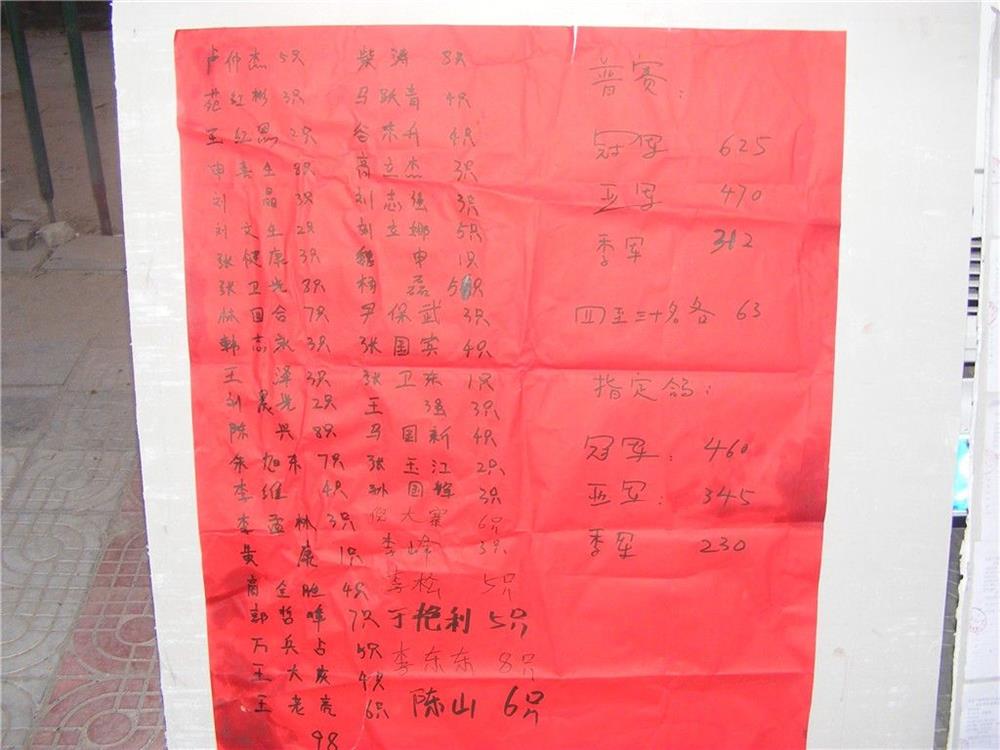 卢仲杰 5只
苑红彬 3只
王红恩 2只
申喜生 8只
刘晶 3只
刘文生 2只
张健康 3只
张卫光 8只
林国合 7只
韩志永 3只
王泽 3只
刘晨光 2只
陈兴 8只
朱旭东 7只
李维 4只
李孟林 3只
黄康 1只
商全胜 4只
郭哲峰 7只
万兵占 5只
王大成 4只
王老虎 6只
98
柴涛 8只
马跃青 4只
谷东升 4只
高立杰 3只
刘志强 3只
刘立娜 5只
魏申 1只
杨磊 5只
尹保武 3只
张国宾 4只
张卫东 1只
王强 3只
马国新 4只
张玉江 2只
孙国辉 3只
倪大寨 6只
李峰 3只
李松 5只
于艳利 5只
李东东 8只
陈山 6只
普赛:
冠军 625
亚军 470
季军 312
四至三十名各 63
指定鸽:
冠军: 460
亚军: 345
季军 230